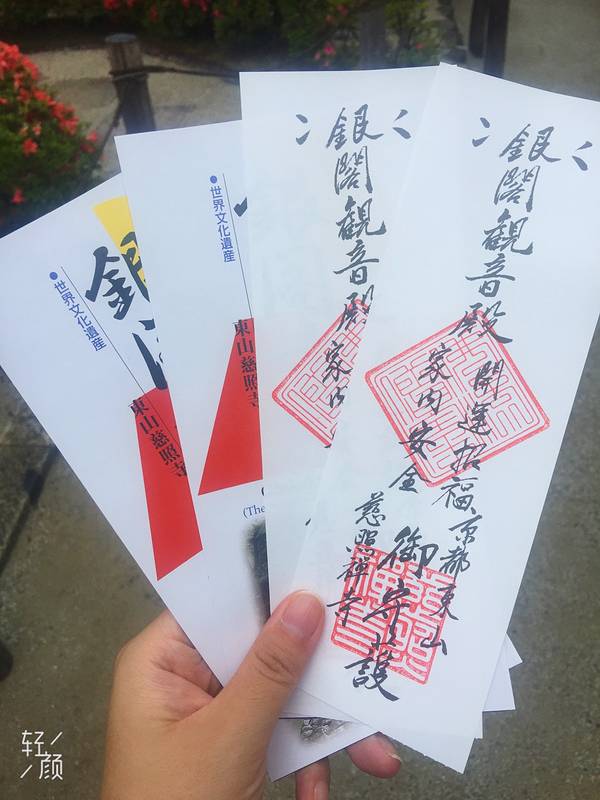 世界文化遺産
銀
東山慈照寺
世界文化遺産
東山慈照寺
(The
銀閣観音殿
家内
銀閣観音殿 御守護
開運招福 京都東山
家内安全 慈照禅寺
轻颜